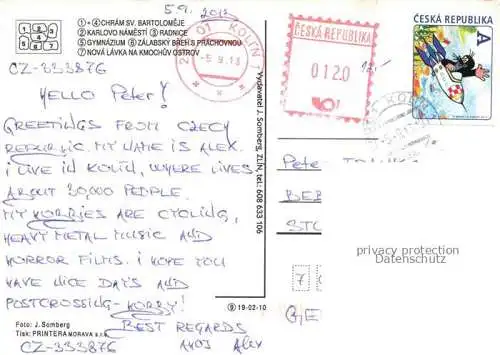 5.9. 2013
① + ④ CHRÁM SV. BARTOLOMĚJE
② KARLOVO NÁMĚSTÍ ③ RADNICE
⑤ GYMNÁZIUM ⑥ ZÁLABSKÝ BŘEH S PRÁCHOVNOU
⑦ NOVÁ LÁVKA NA KMOCHŮV OSTROV
CZ-333876
HELLO Peter!
GREETINGS FROM CZECH
REPUBLIC. MY NAME IS ALEX.
I LIVE IN KOLÍN, WHERE LIVES
ABOUT 30,000 PEOPLE.
MY HOBBIES ARE CYCLING,
HEAVY METAL MUSIC AND
HORROR FILMS. I HOPE YOU
HAVE NICE DAYS AND
POSTCROSSING-HOBBY!
BEST REGARDS
AHOJ ALEX
Foto: J. Somberg
Tisk: PRINTERA MORAVA s.r.o.
CZ-333876
⑨ 19-02-10
Vydavatel J. Somberg, ZLÍN, tel.: 608 633 106
KOLÍN 1
-5.9.13
ČESKÁ REPUBLIKA
0120
12,-
ČESKÁ REPUBLIKA
A
Peter
BE
STO
privacy protection
Datenschutz
7
GE